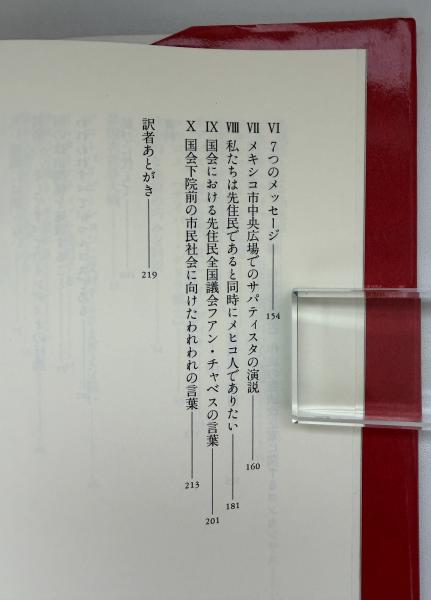 VI 7つのメッセージ 154
VII メキシコ市中央広場でのサパティスタの演説 160
VIII 私たちは先住民であると同時にメヒコ人でありたい 181
IX 国会における先住民全国議会フアン・チャベスの言葉 201
X 国会下院前の市民社会に向けたわれわれの言葉 213
訳者あとがき 219